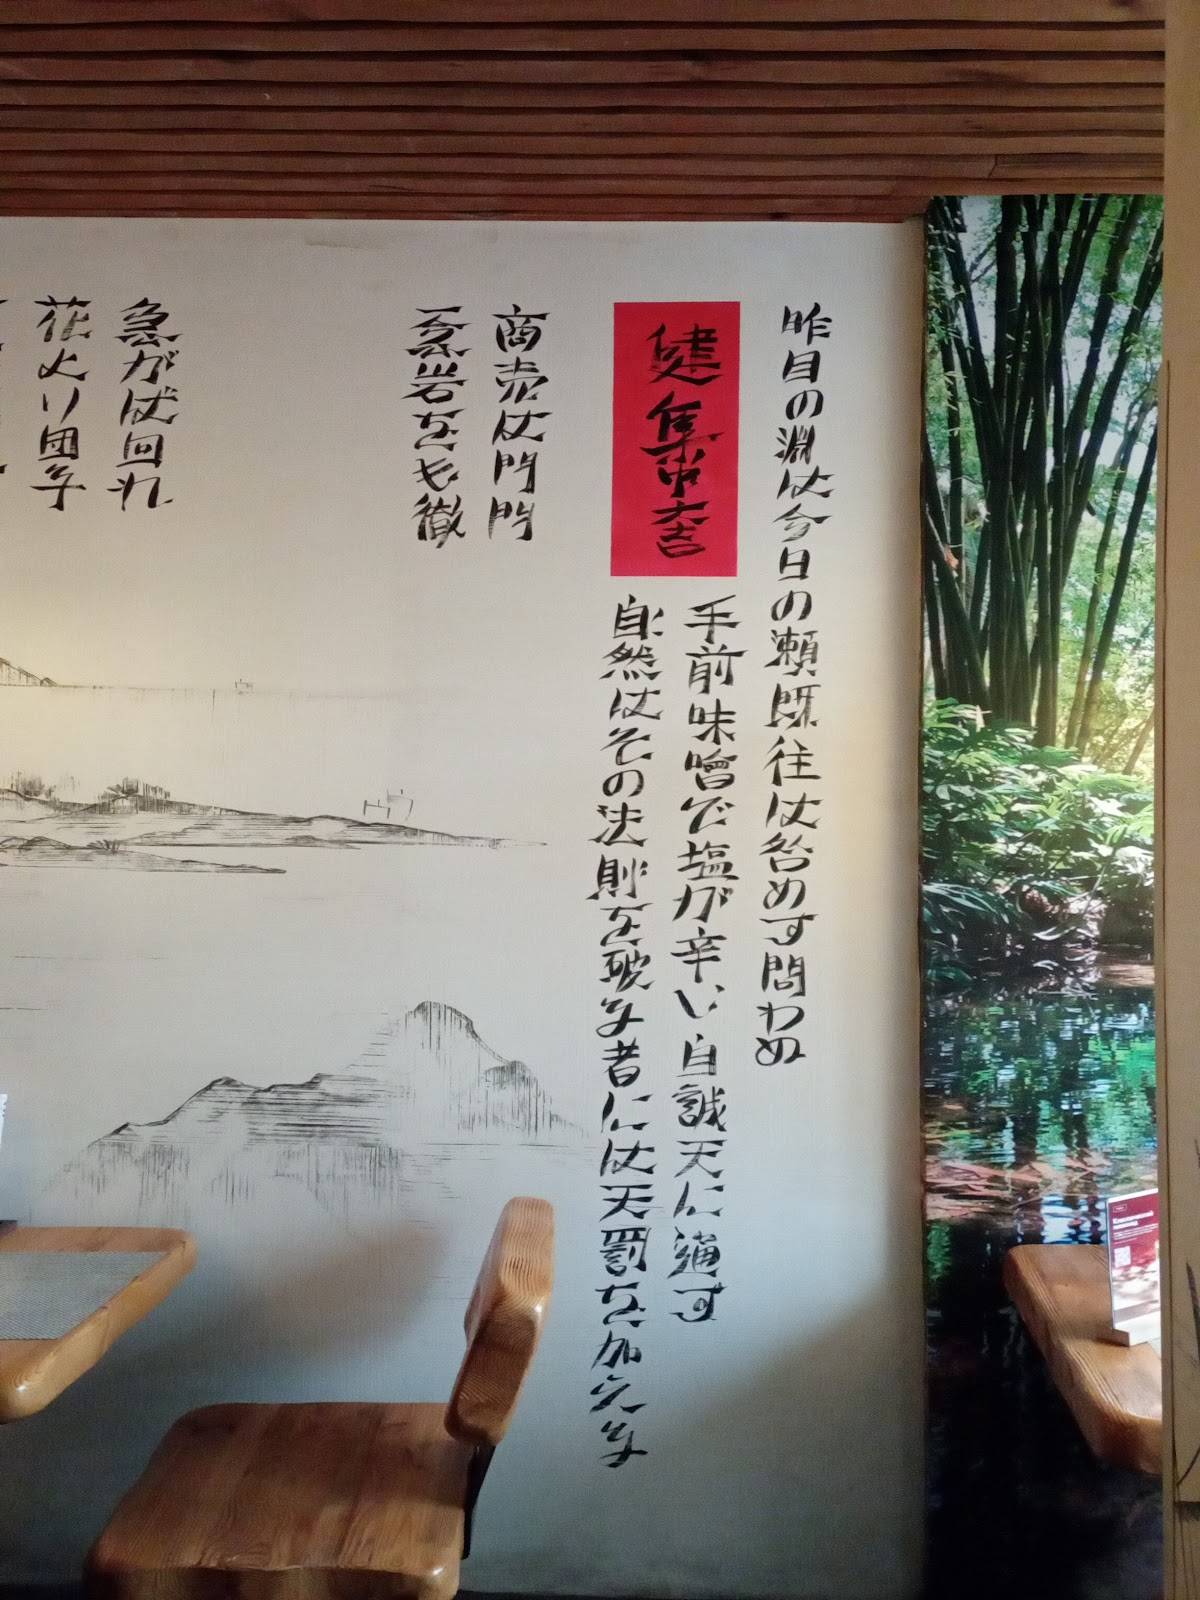 昨日の淵は今日の瀬既往は咎めす問わぬ
健集中大吉
手前味噌で塩が辛い自誠天に通す
自然はその法則を破る者には天罰を加える
商売は門門
一念岩をも徹
急がば回れ
花より団子